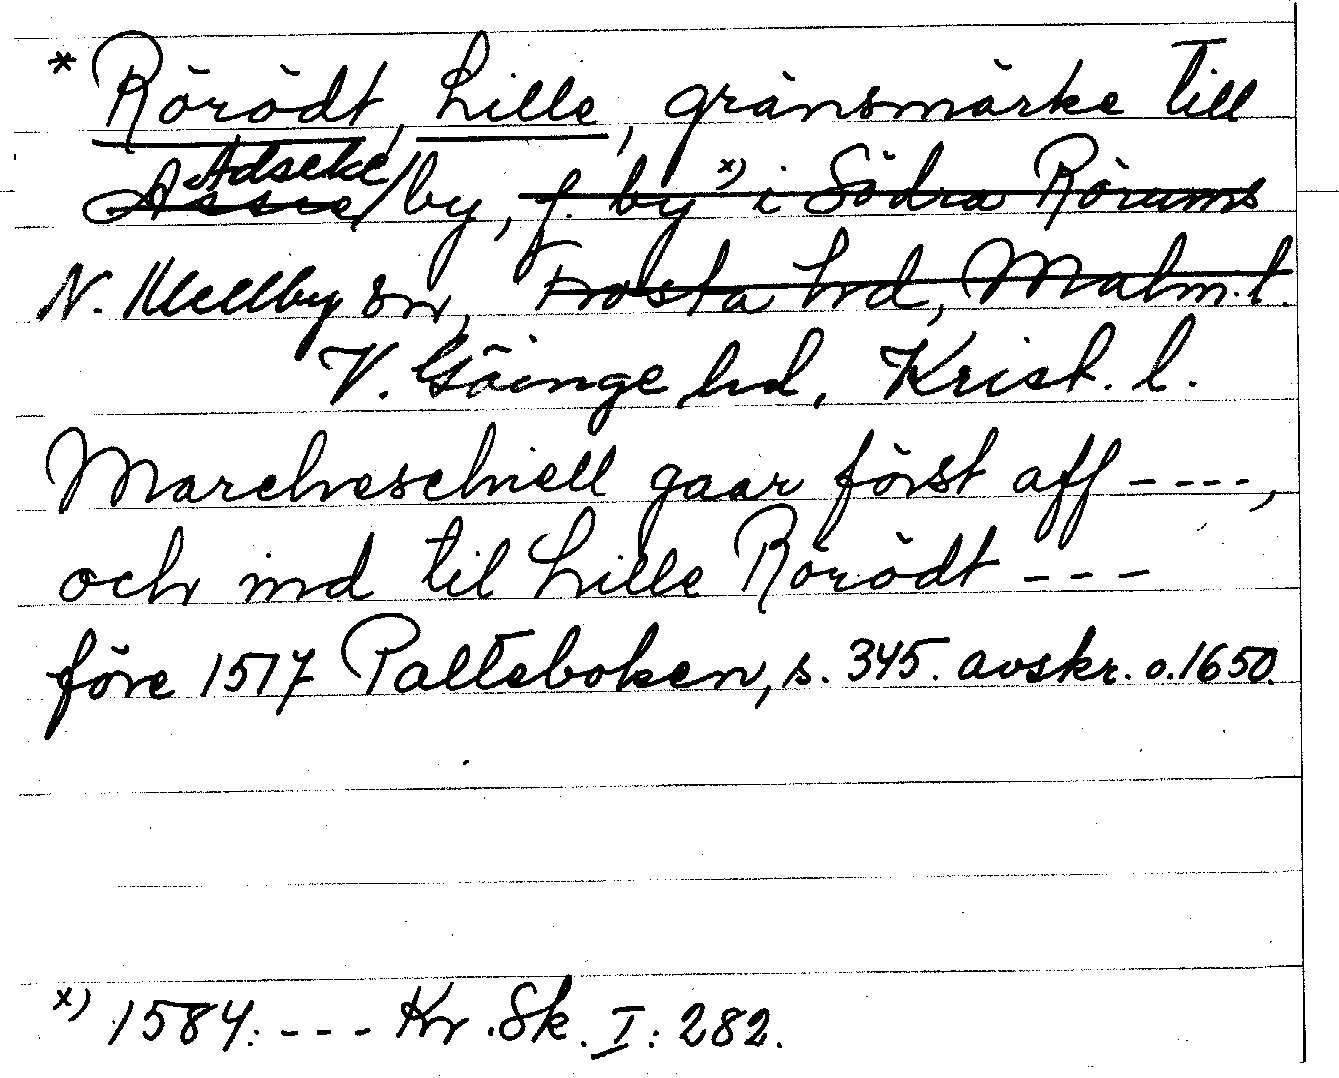 * Rörödt, Lille, gränsmärke till
Adseke
Assie/by, f. by x) i Södra Rörums
N. Mellby sn, Frosta hrd, Malm. l.
V. Göinge hrd, Krist. l.
Marcheschiell gaar först aff ----,
och ind til Lille Rörödt ---
före 1517 Palteboken, s. 345. avskr. o. 1650.
x) 1584: --- Kr. Sk. I: 282.